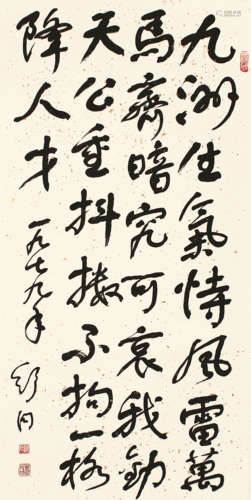 九洲生氣恃風雷萬
馬齊暗究可哀我勸
天公重抖擻不拘一格
降人才 一九七九年 舒同